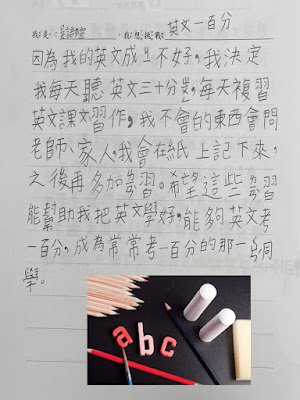 我是: ,我想挑戰: 英文一百分
因為我的英文成ㄐㄧ不好,我決定
我每天聽英文三十分ㄓㄨㄥ,每天複習
英文課文習作,我不會的東西會問
老師、家人,我會在紙上記下來,
之後再多加ㄌㄧㄢˋ習。希望這些ㄌㄧㄢˋ習
能幫助我把英文學好,能夠英文考
一百分,成為常常考一百分的那一 同
學。
abc